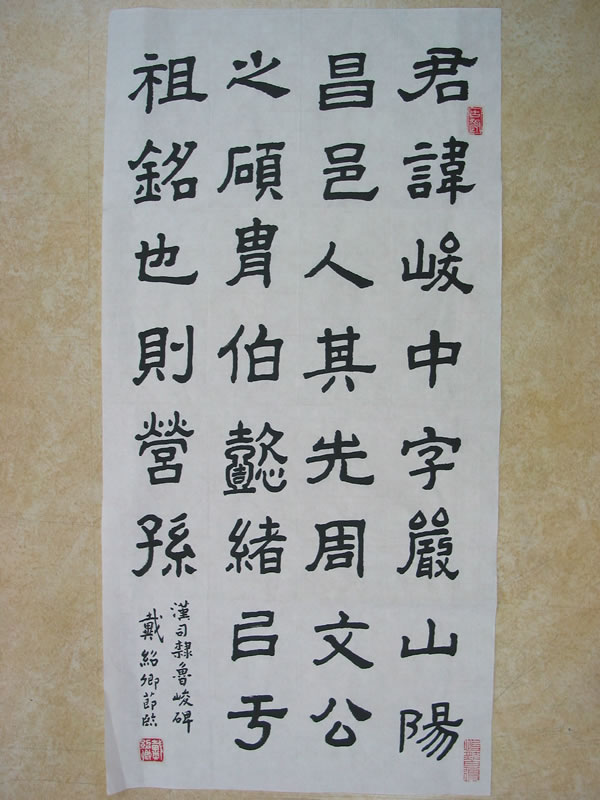 君諱峻中字嚴山陽
昌邑人其先周文公
之碩胄伯懿緒㠯亏
祖銘也則營孫
漢司隸魯峻碑
戴紹卿節臨